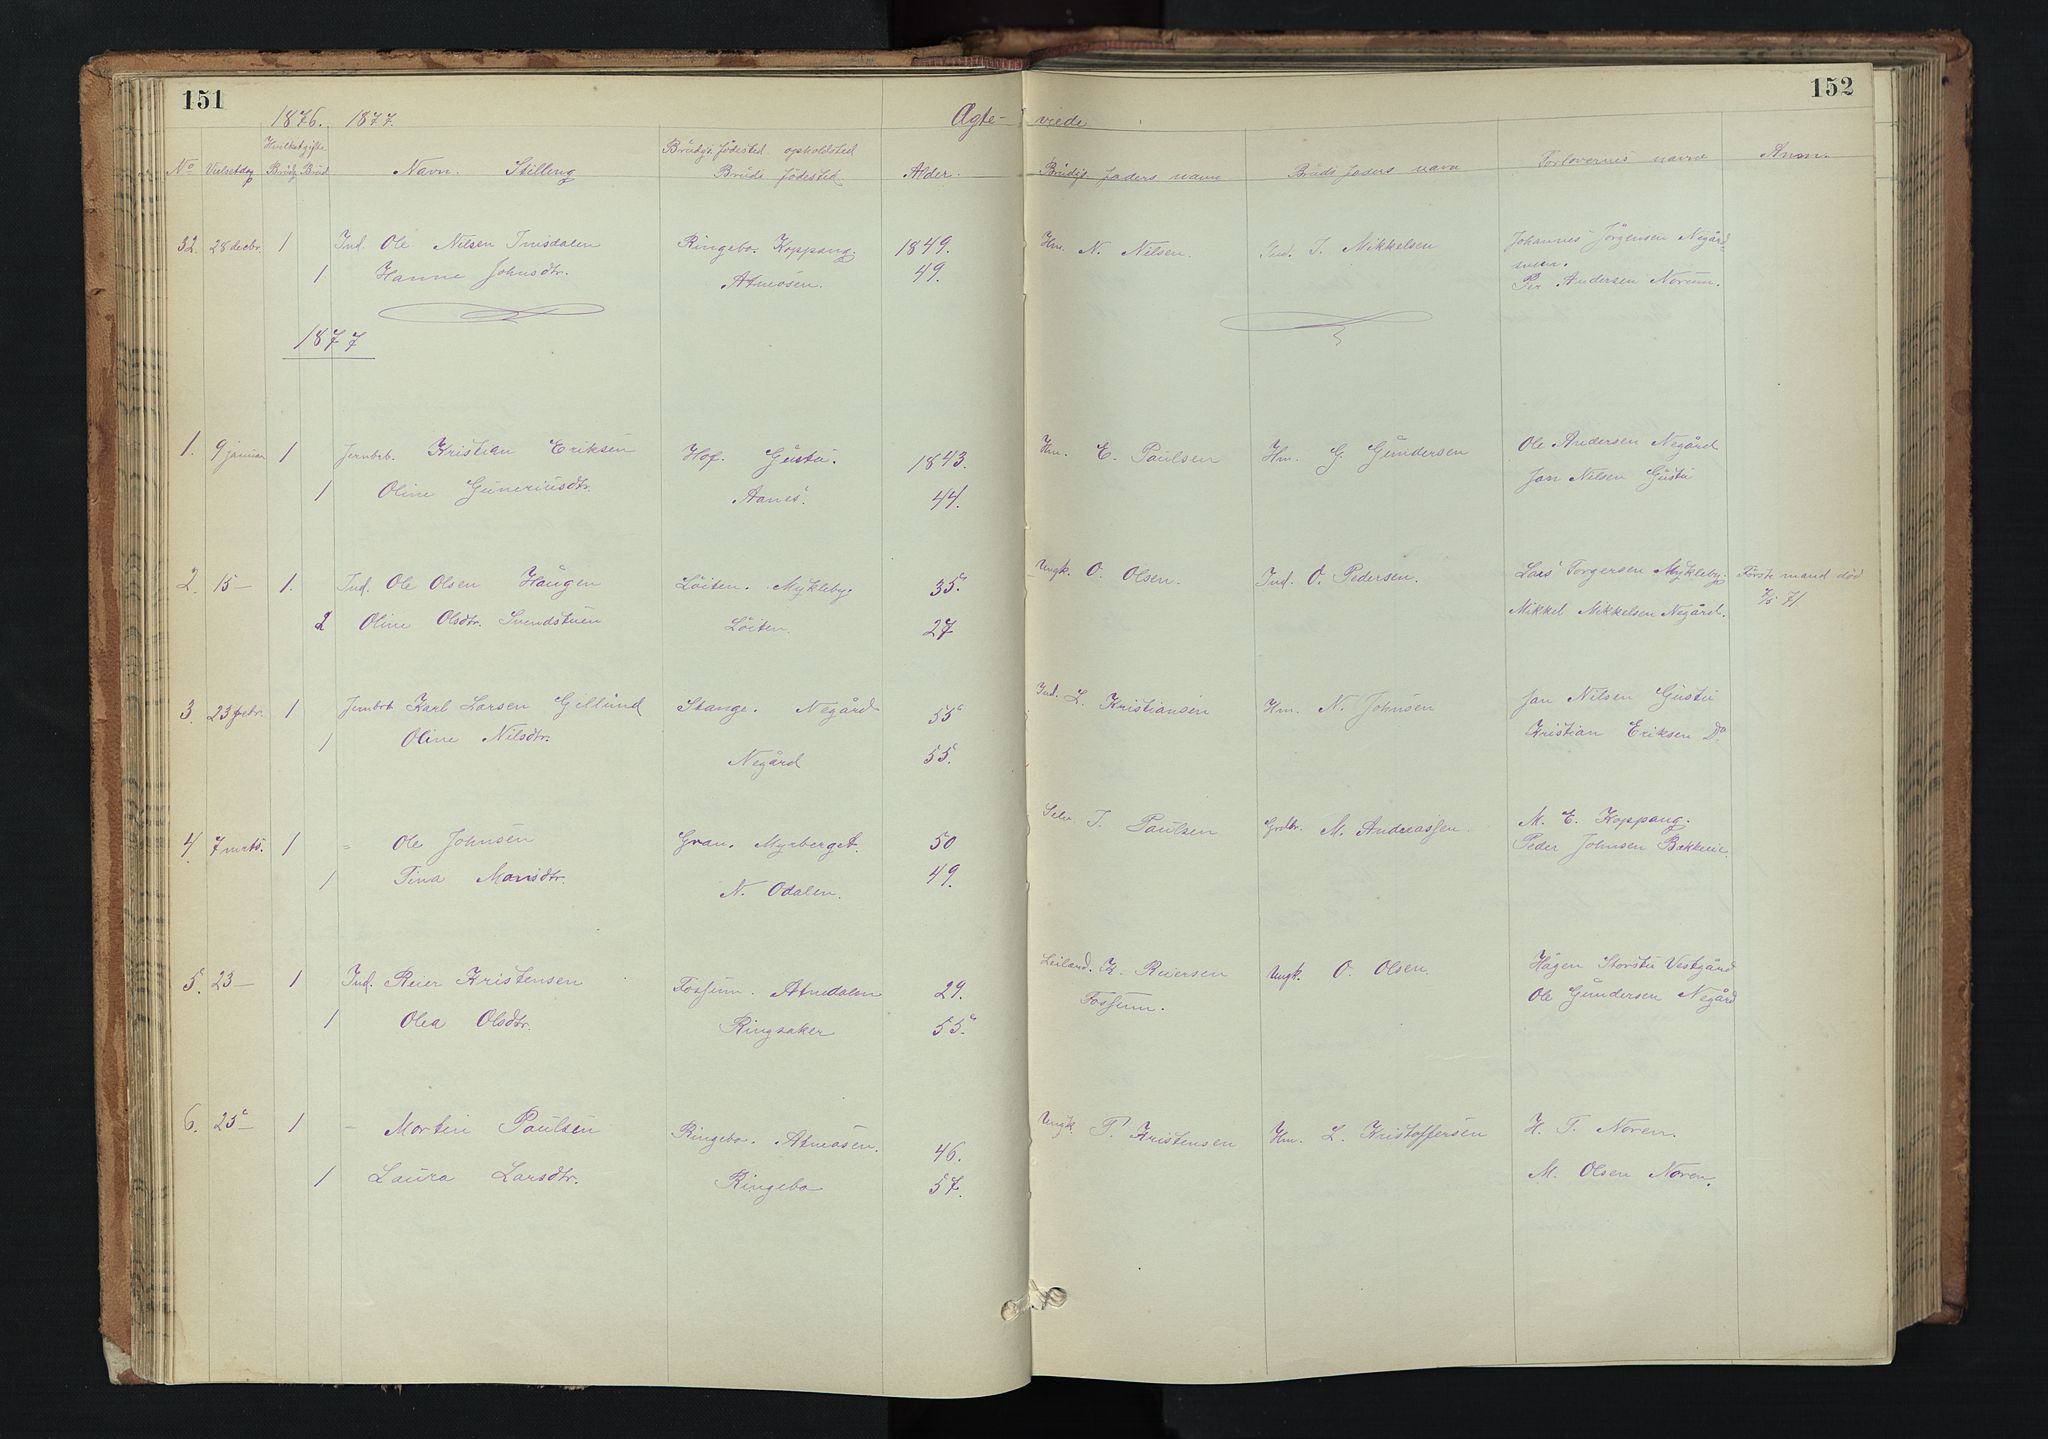 151
152
1876. 1877.
Ægte- viede
No Vielsesdag Hvilketgifte Brudg Brud Navn. Stilling Brudgs. fødested opholdsted Bruds fødested Alder. Brudgs faders navn Bruds faders navn Forlovernes navne Anm.
32. 28 decbr. 1 Ind. Ole Nilsen Ringebo. Koppang. 1849. Hm. N. Nilsen. Ind. J. Mikkelsen Johannes Jörgensen Negård
1 Hanne Johnsdtr. Atneosen. 49. Per Andersen Norum.
1877
1. 9 januar 1 Jernbrb. Kristian Eriksen Hof. Gustu. 1843. Hm. E. Paulsen Hm. G. Gundersen Ole Andersen Negård
1 Oline Guneriusdtr. Aanes. 44. Jon Nilsen Gustu
2. 15 — 1. Ind. Ole Olsen Haugen Löiten. Mykleby. 35. Ungk. O. Olsen. Ind. O. Pedersen. Lars Torgersen Mykleby. Förste mand död
2 Oline Olsdtr. Svendstuen Löiten. 27 Mikkel Mikkelsen Negård. 7/5 71.
3. 23 febr. 1 Jernbrb Karl Larsen Gillund Stange. Negård 55 Ind. L. Kristiansen Hm. N. Johnsen Jon Nilsen Gustu
1 Oline Nilsdtr. Negård 55. Kristian Eriksen Do
4. 7 mrts. 1 - Ole Johnsen Gran. Myrberget. 50 Selv J. Paulsen Grdbr. M. Andreassen. M. E. Koppang.
1 Tina Monsdtr. N. Odalen. 49. Peder Johnsen Bakkeie.
5. 23 — 1 Ind. Reier Kristensen Fossum. Atnedalen 29. Leiland. K. Reiersen Ungk. O. Olsen. Hågen Storstu Vestgård
1 Olea Olsdtr. Ringsaker 55. Fossum. Ole Gundersen Negård
6. 25 — 1 - Morten Paulsen Ringebo. Atneosen. 46. Ungk. P. Kristensen Hm. L. Kristoffersen H. T. Noren.
1 Laura Larsdtr. Ringebo 57. M. Olsen Noren.